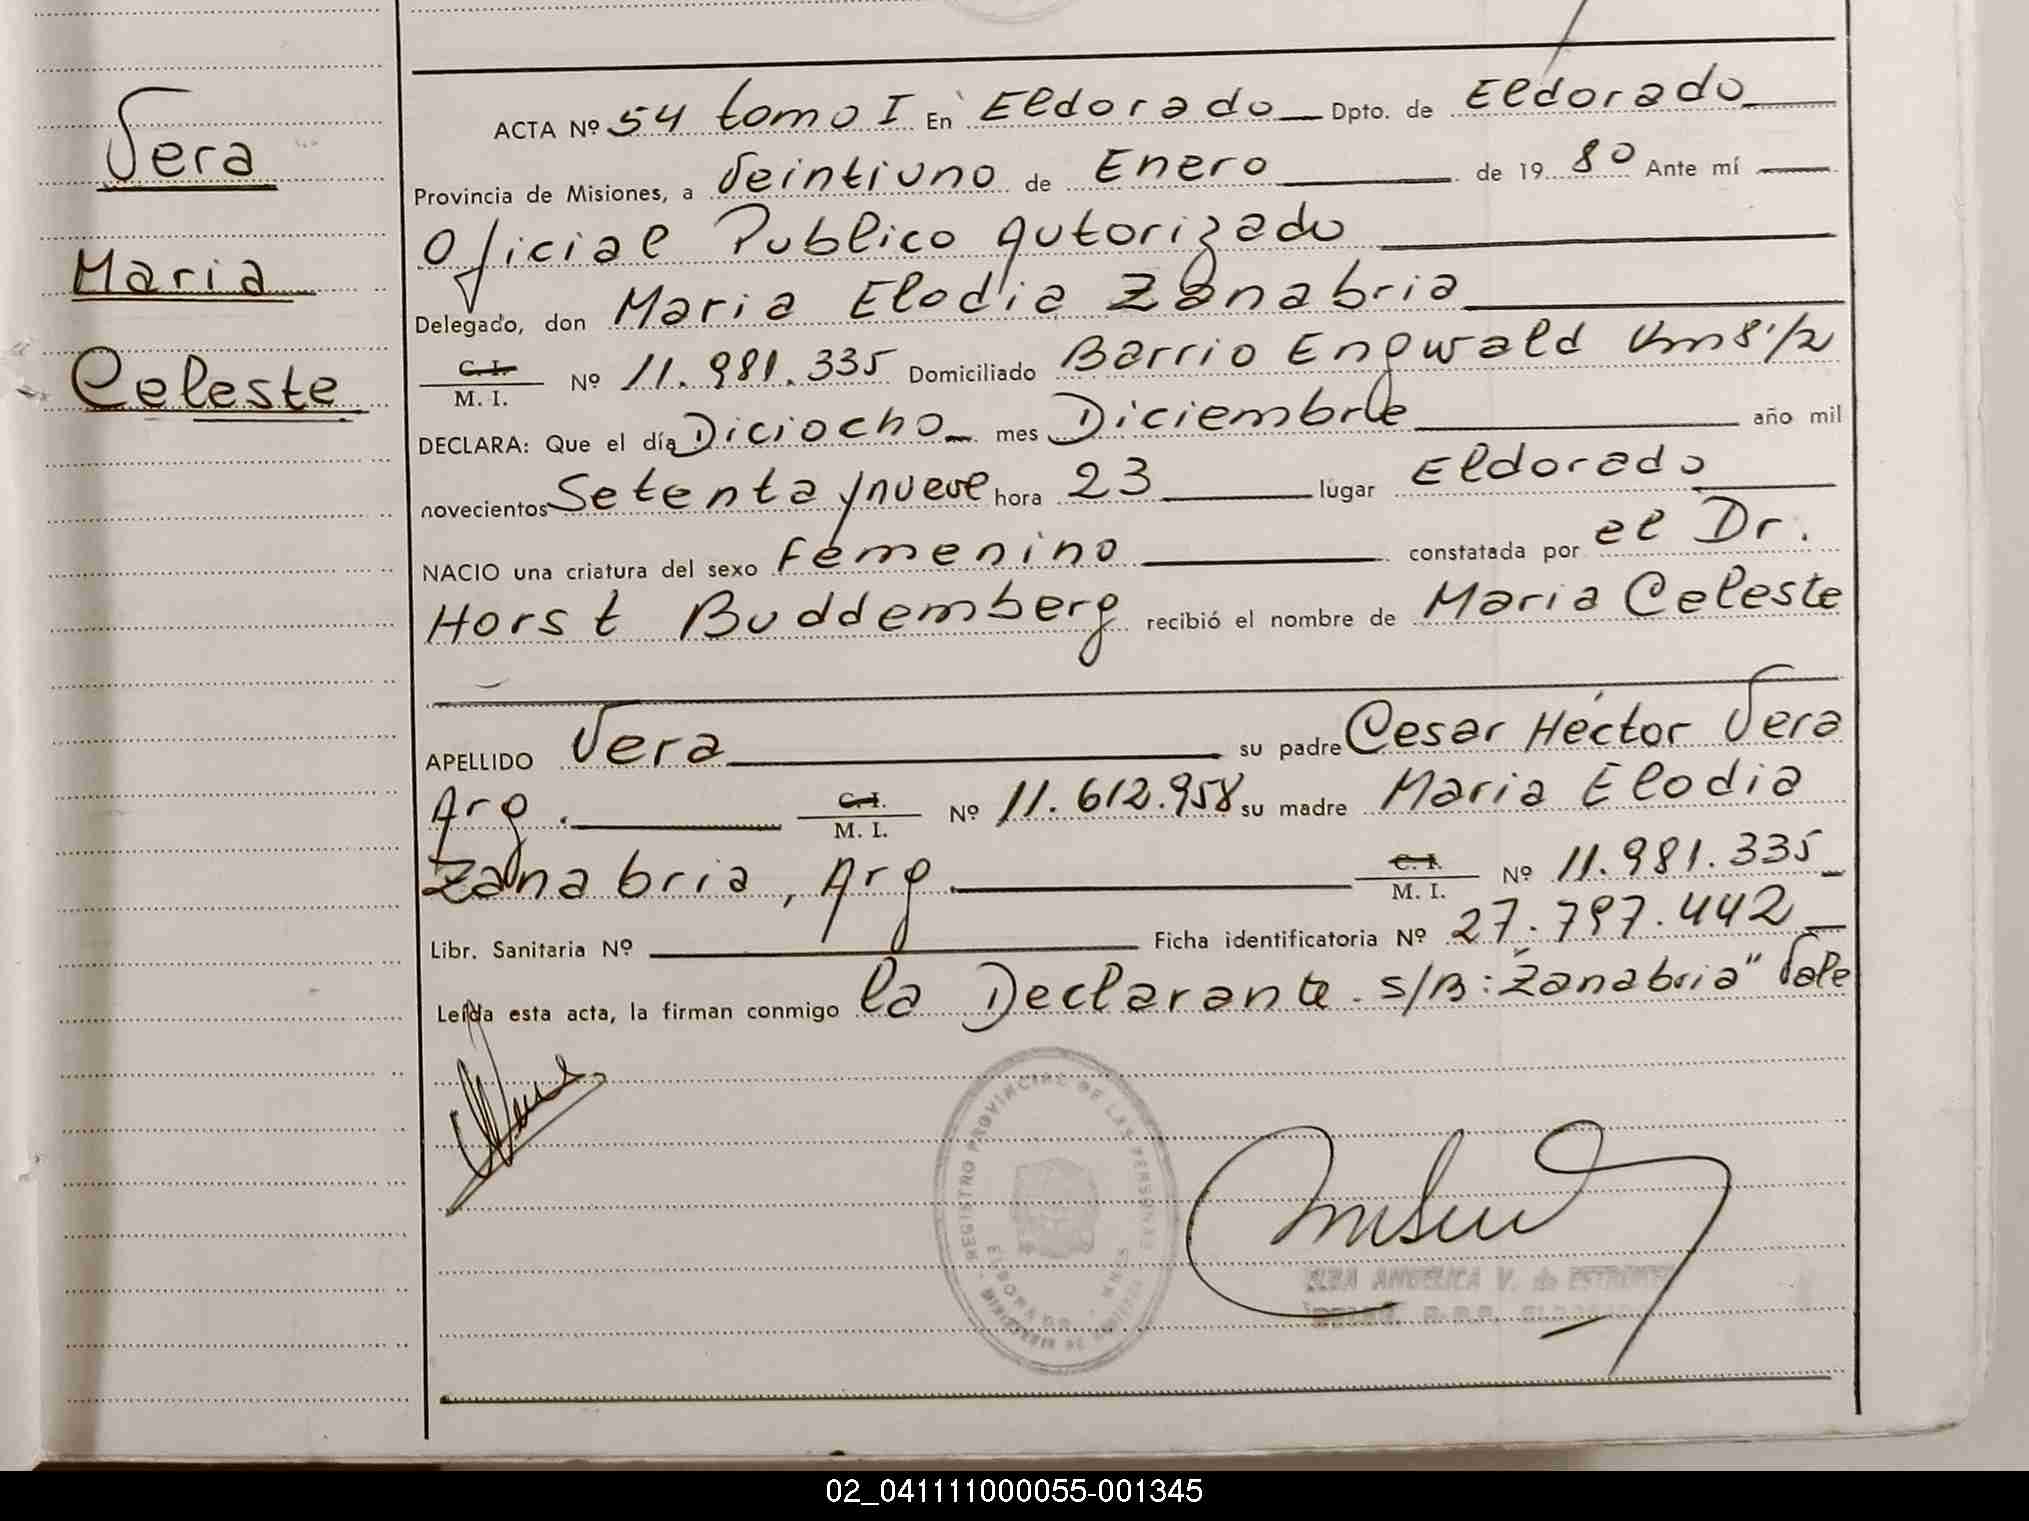 Vera
Maria
Celeste
ACTA Nº 54 tomo I En Eldorado Dpto. de Eldorado
Provincia de Misiones, a Veintiuno de Enero de 19 80 Ante mí
Oficial Publico Autorizado
Delegado, don Maria Elodia Zanabria
C. I. M. I. Nº 11.981.335 Domiciliado Barrio Engwald Km 8 1/2
DECLARA: Que el día Diciocho mes Diciembre año mil
novecientos Setenta y nueve hora 23 lugar Eldorado
NACIO una criatura del sexo Femenino constatada por el Dr.
Horst Buddemberg recibió el nombre de Maria Celeste
APELLIDO Vera su padre Cesar Héctor Vera
Arg. C. I. M. I. Nº 11.612.958 su madre Maria Elodia
Zanabria, Arg C. I. M. I. Nº 11.981.335
Libr. Sanitaria Nº Ficha identificatoria Nº 27.797.442
Leída esta acta, la firman conmigo la Declarante. S/B: "Zanabria" Vale
REGISTRO PROVINCIAL DE LAS PERSONAS
ELDORADO
ELBA ANGELICA V. de
02_041111000055-001345